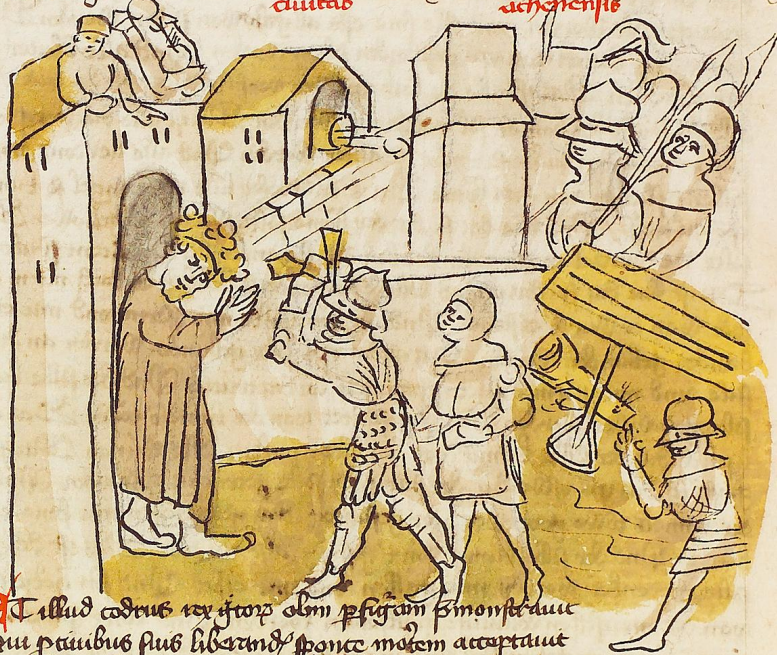 ciuitas athenensis
AT illud codrus rex g̾coꝝ olim ꝑfigurã p̄monstrauit
Qui ꝓ ciuibus suis liberandꝭ sponte mo̾tem acceptauit